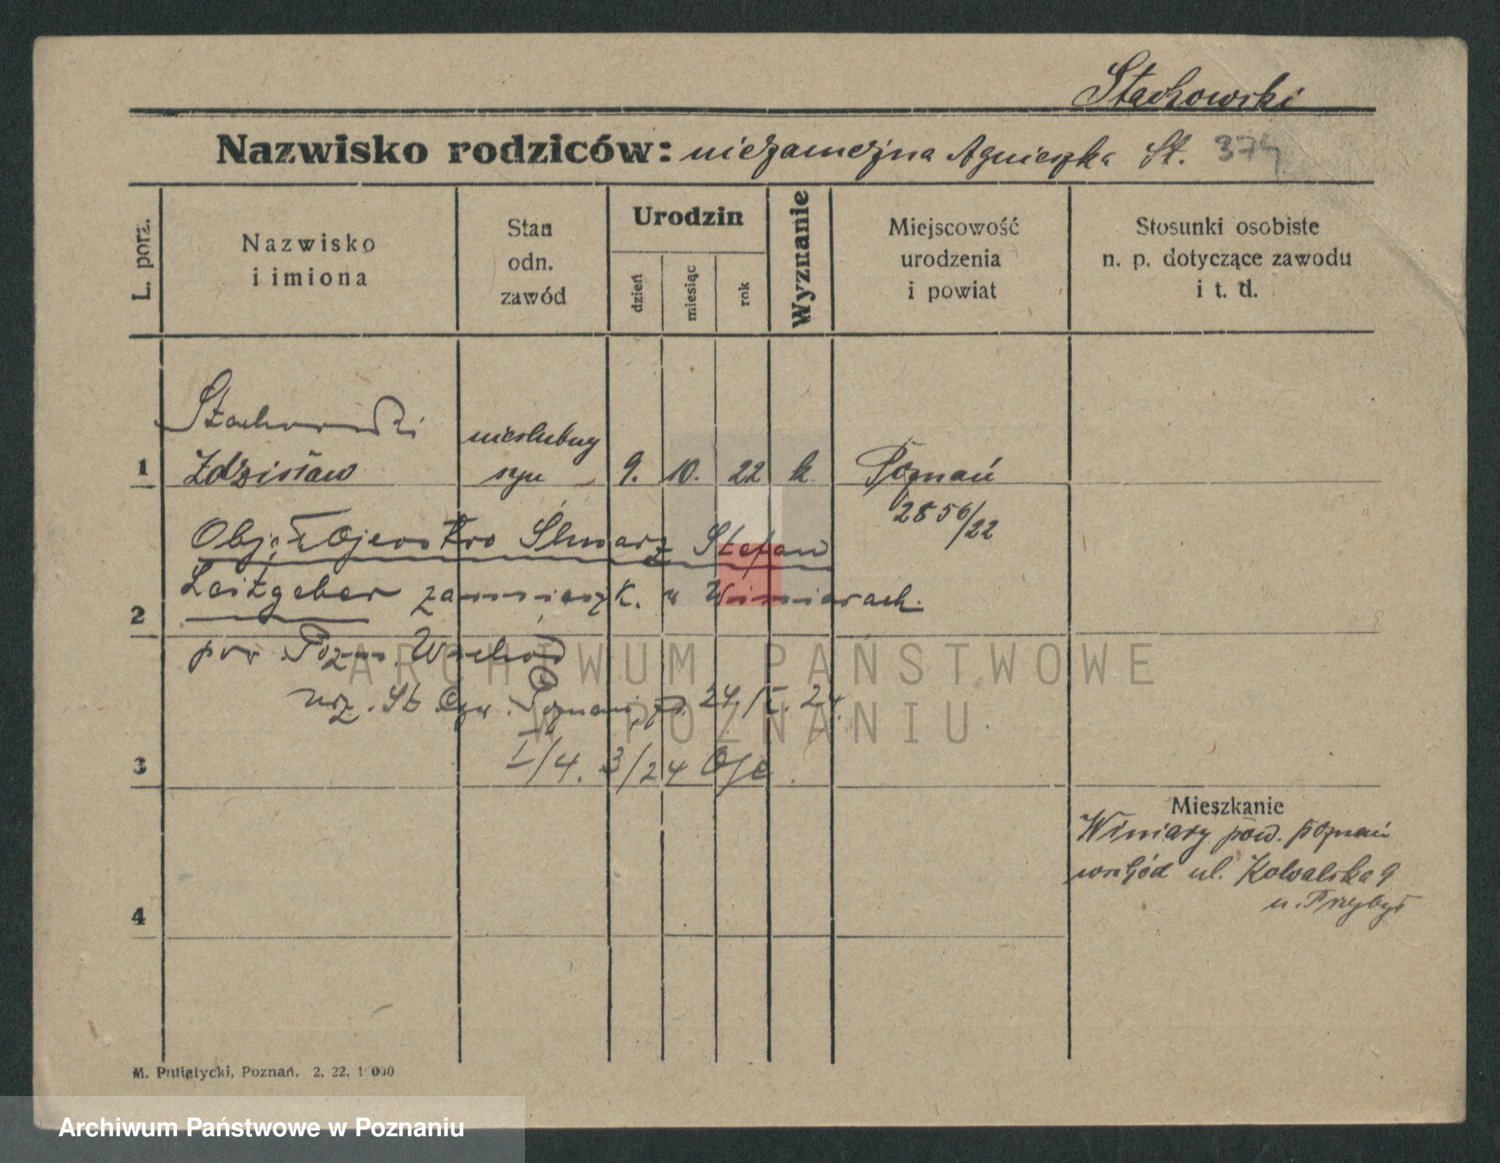 Stachowski
Nazwisko rodziców: niezamężna Agnieszka St. 374
L. porz.
Nazwisko
i imiona
Stan
odn.
zawód
Urodzin
dzień
miesiąc
rok
Wyznanie
Miejscowość
urodzenia
i powiat
Stosunki osobiste
n. p. dotyczące zawodu
i t. d.
Stachowski
nieślubny
1 Zdzisław syn 9. 10. 22 k. Poznań
2856/22
Obj. Ojcostwo Stefan
2 Leitgeber zamieszk. w Winiarach
pow. Pozn. Wschód
urz. St. Cyw. 24/I. 24
3 I/4. 3/24
Mieszkanie
Winiary pow. Poznań
wschód ul. Kowalska 9
u. Przybył
4
M. Putiatycki, Poznań. 2. 22. 1000
ARCHIWUM PAŃSTWOWE
W POZNANIU
Archiwum Państwowe w Poznaniu